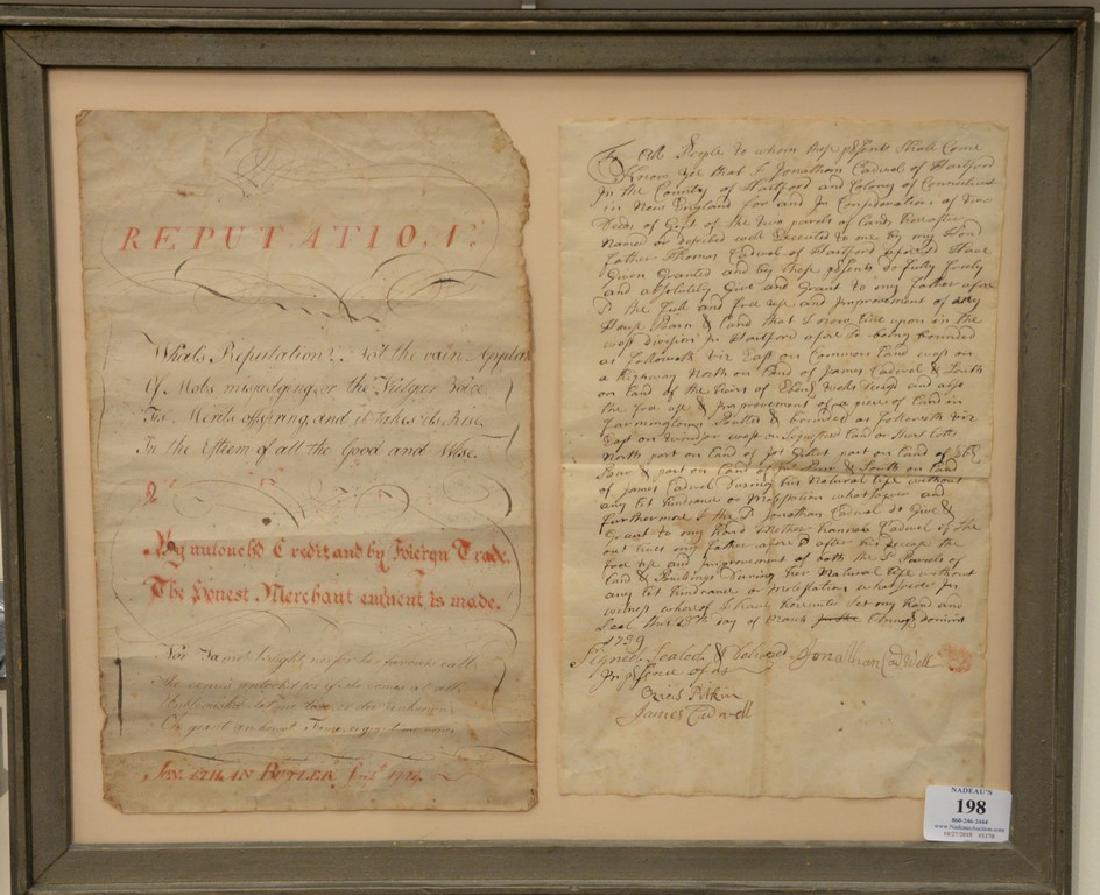 REPUTATION.
What's Reputation? Not the vain Applause
Of Mobs misjudging, or the Vulgar Voice
Tis Merits offspring, and it takes its Rise,
In the Esteem of all the Good and Wise.
By untouch'd Credit and by Foreign Trade.
The Honest Merchant eminent is made.
Nor Fame I slight, nor for her favours call
She comes unlook'd for if she comes at all
Unblemish'd let me live, or die unknown
Oh grant an honest Fame, or grant me none
JONATHAN BUTLER
To All People to whom these psents Shall Come
Know Yee that I Jonathan Cadwel of Hartford
In the County of Hartford and Colony of Connecticut
in New England for and In Consideration of two
Deeds of Gift of the two parcels of land hereafter
Named or discribed well Executed to me by my Hon
father Thomas Cadwel of Hartford Have
Given Granted and by these psents do fully freely
and absolutely Give and Grant to my father
the full and free use and Improvement of my
House Barn & land that I now live upon in the
west division In Hartford being bounded
as followeth viz East on Common land west on
a highway North on land of James Cadwel & South
on land of the heirs of and also
the free use & Improvement of a piece of land in
farmingtown & bounded as followeth viz
East on Windsor west on land or
North part on land of part on land of
& part on land of & South on land
of James Cadwel During his Natural life without
any let hindrance or Molestation whatsoever and
furthermore I the Sd Jonathan Cadwel do Give &
Grant to my Hond Mother Hannah Cadwel if she
out lives my father after his decease the
free use and Improvement of both the Sd parcels of
land & Buildings During her Natural life without
any let hindrance or Molestation whatsoever In
witness whereof I have hereunto Set my hand and
Seal this day of March
1739
Signed Sealed & Delivered Jonathan Cadwell
In psence of us
Ozias Pitkin
James Cadwell
NADEAU'S
198
860-246-2444
www.NadeausAuction.com
10/27/2018